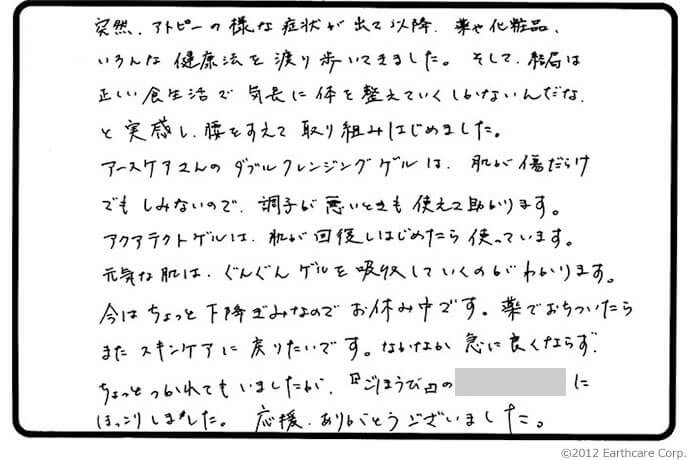 突然、アトピーの様な症状が出て以降、薬や化粧品、
いろんな健康法を渡り歩いてきました。そして、結局は
正しい食生活で気長に体を整えていくしかないんだな、
と実感し、腰をすえて取り組みはじめました。
アースケアさんのダブルクレンジングゲルは、肌が傷だらけ
でもしみないので、調子が悪いときも使えて助かります。
アクアテクトゲルは、肌が回復しはじめたら使っています。
元気な肌は、ぐんぐんゲルを吸収していくのがわかります。
今はちょっと下降ぎみなのでお休み中です。薬でおちついたら
またスキンケアに戻りたいです。なかなか急に良くならず、
ちょっとつかれてもいましたが、『ごほうび』の に
ほっこりしました。応援、ありがとうございました。
©2012 Earthcare Corp.